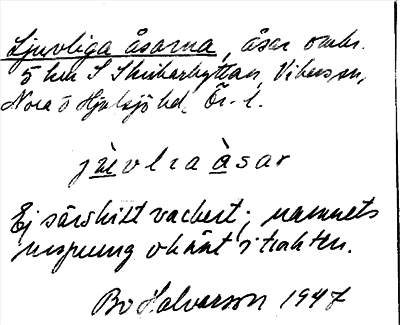 Ljuvliga åsarna, åsar omkr.
5 km S Skrikarhyttan, Vikers sn,
Nora o Hjulsjö hd, Ör. l.
j u̲ vlia å̲sar
Ej särskilt vackert; namnets
ursprung okänt i trakten.
Bo Halvarson 1947